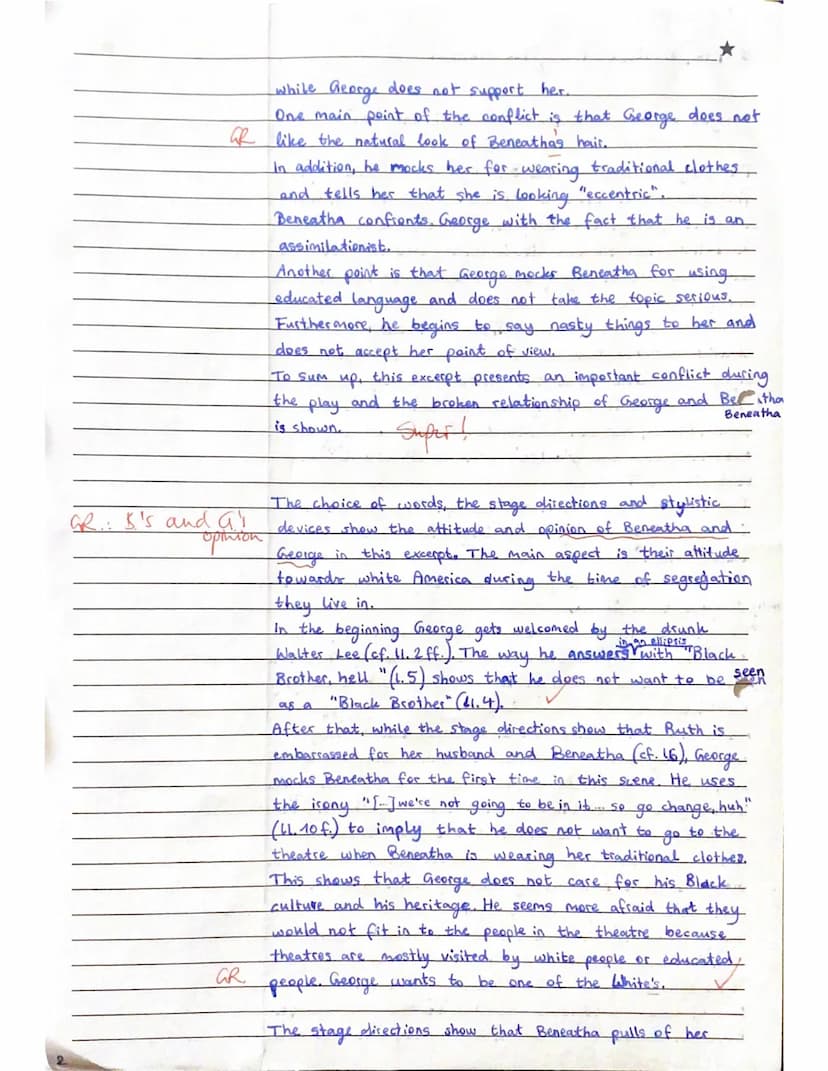 while George does not support her.
One main point of the conflict is that George does not
GR like the natural look of Beneatha's hair.
In addition, he mocks her for wearing traditional clothes
and tells her that she is looking "eccentric".
Beneatha confronts George with the fact that he is an
assimilationist.
Another point is that George mocks Beneatha for using
educated language and does not take the topic serious.
Furthermore, he begins to say nasty things to her and
does not accept her point of view.
To sum up, this excerpt presents an important conflict during
the play and the broken relationship of George and
Beneatha
is shown. Super!
The choice of words, the stage directions and stylistic
GR.: B's and G's devices show the attitude and opinion of Beneatha and
opinion
George in this excerpt. The main aspect is their attitude
towards white America during the time of segregation
they live in.
In the beginning George gets welcomed by the drunk
in an ellipsis
Walter Lee (cf. ll. 2 ff.). The way he answers with "Black
Brother, hell" (l.5) shows that he does not want to be seen
as a "Black Brother" (ll.4).
After that, while the stage directions show that Ruth is
embarrassed for her husband and Beneatha (cf. l6), George
mocks Beneatha for the first time in this scene. He uses
the irony "[...] we're not going to be in it... so go change, huh"
(ll. 10 f.) to imply that he does not want to go to the
theatre when Beneatha is wearing her traditional clothes.
This shows that George does not care for his Black
culture and his heritage. He seems more afraid that they
would not fit in to the people in the theatre because
theatres are mostly visited by white people or educated
GR people. George wants to be one of the White's.
The stage directions show that Beneatha pulls of her
2